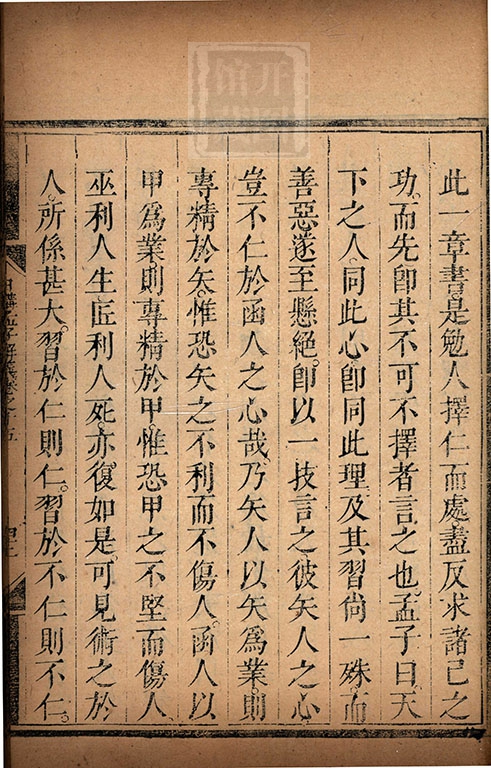 此一章書。是勉人擇仁而處。盡反求諸己之
功。而先即其不可不擇者言之也。孟子曰。天
下之人。同此心。即同此理。及其習尚一殊。而
善惡遂至懸絕。即以一技言之。彼矢人之心。
豈不仁於函人之心哉。乃矢人以矢為業。則
專精於矢。惟恐矢之不利而不傷人。函人以
甲為業。則專精於甲。惟恐甲之不堅而傷人。
巫利人生。匠利人死。亦復如是。可見術之於
人。所係甚大。習於仁則仁。習於不仁則不仁。